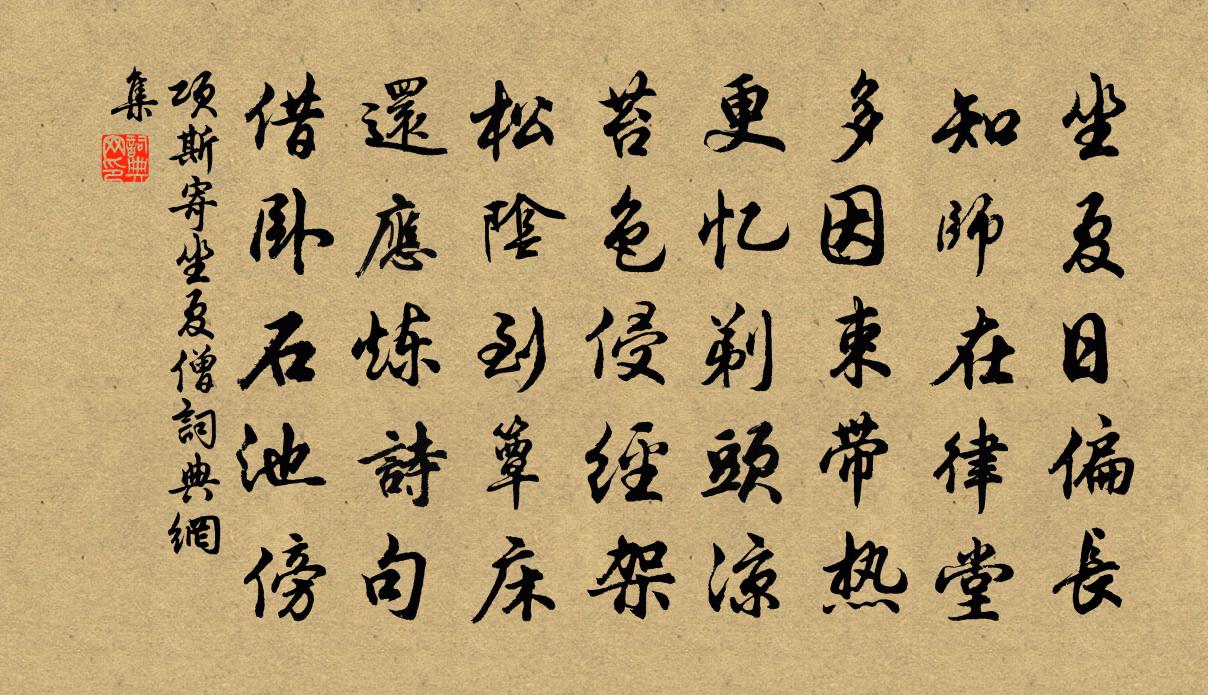 坐夏日偏長
知師在律堂
多因束帶热
更忆剃頭涼
苔色侵經架
松陰到簟床
還應炼詩句
借卧石池傍
項斯寄坐夏僧詞典網
集
詞典
网印